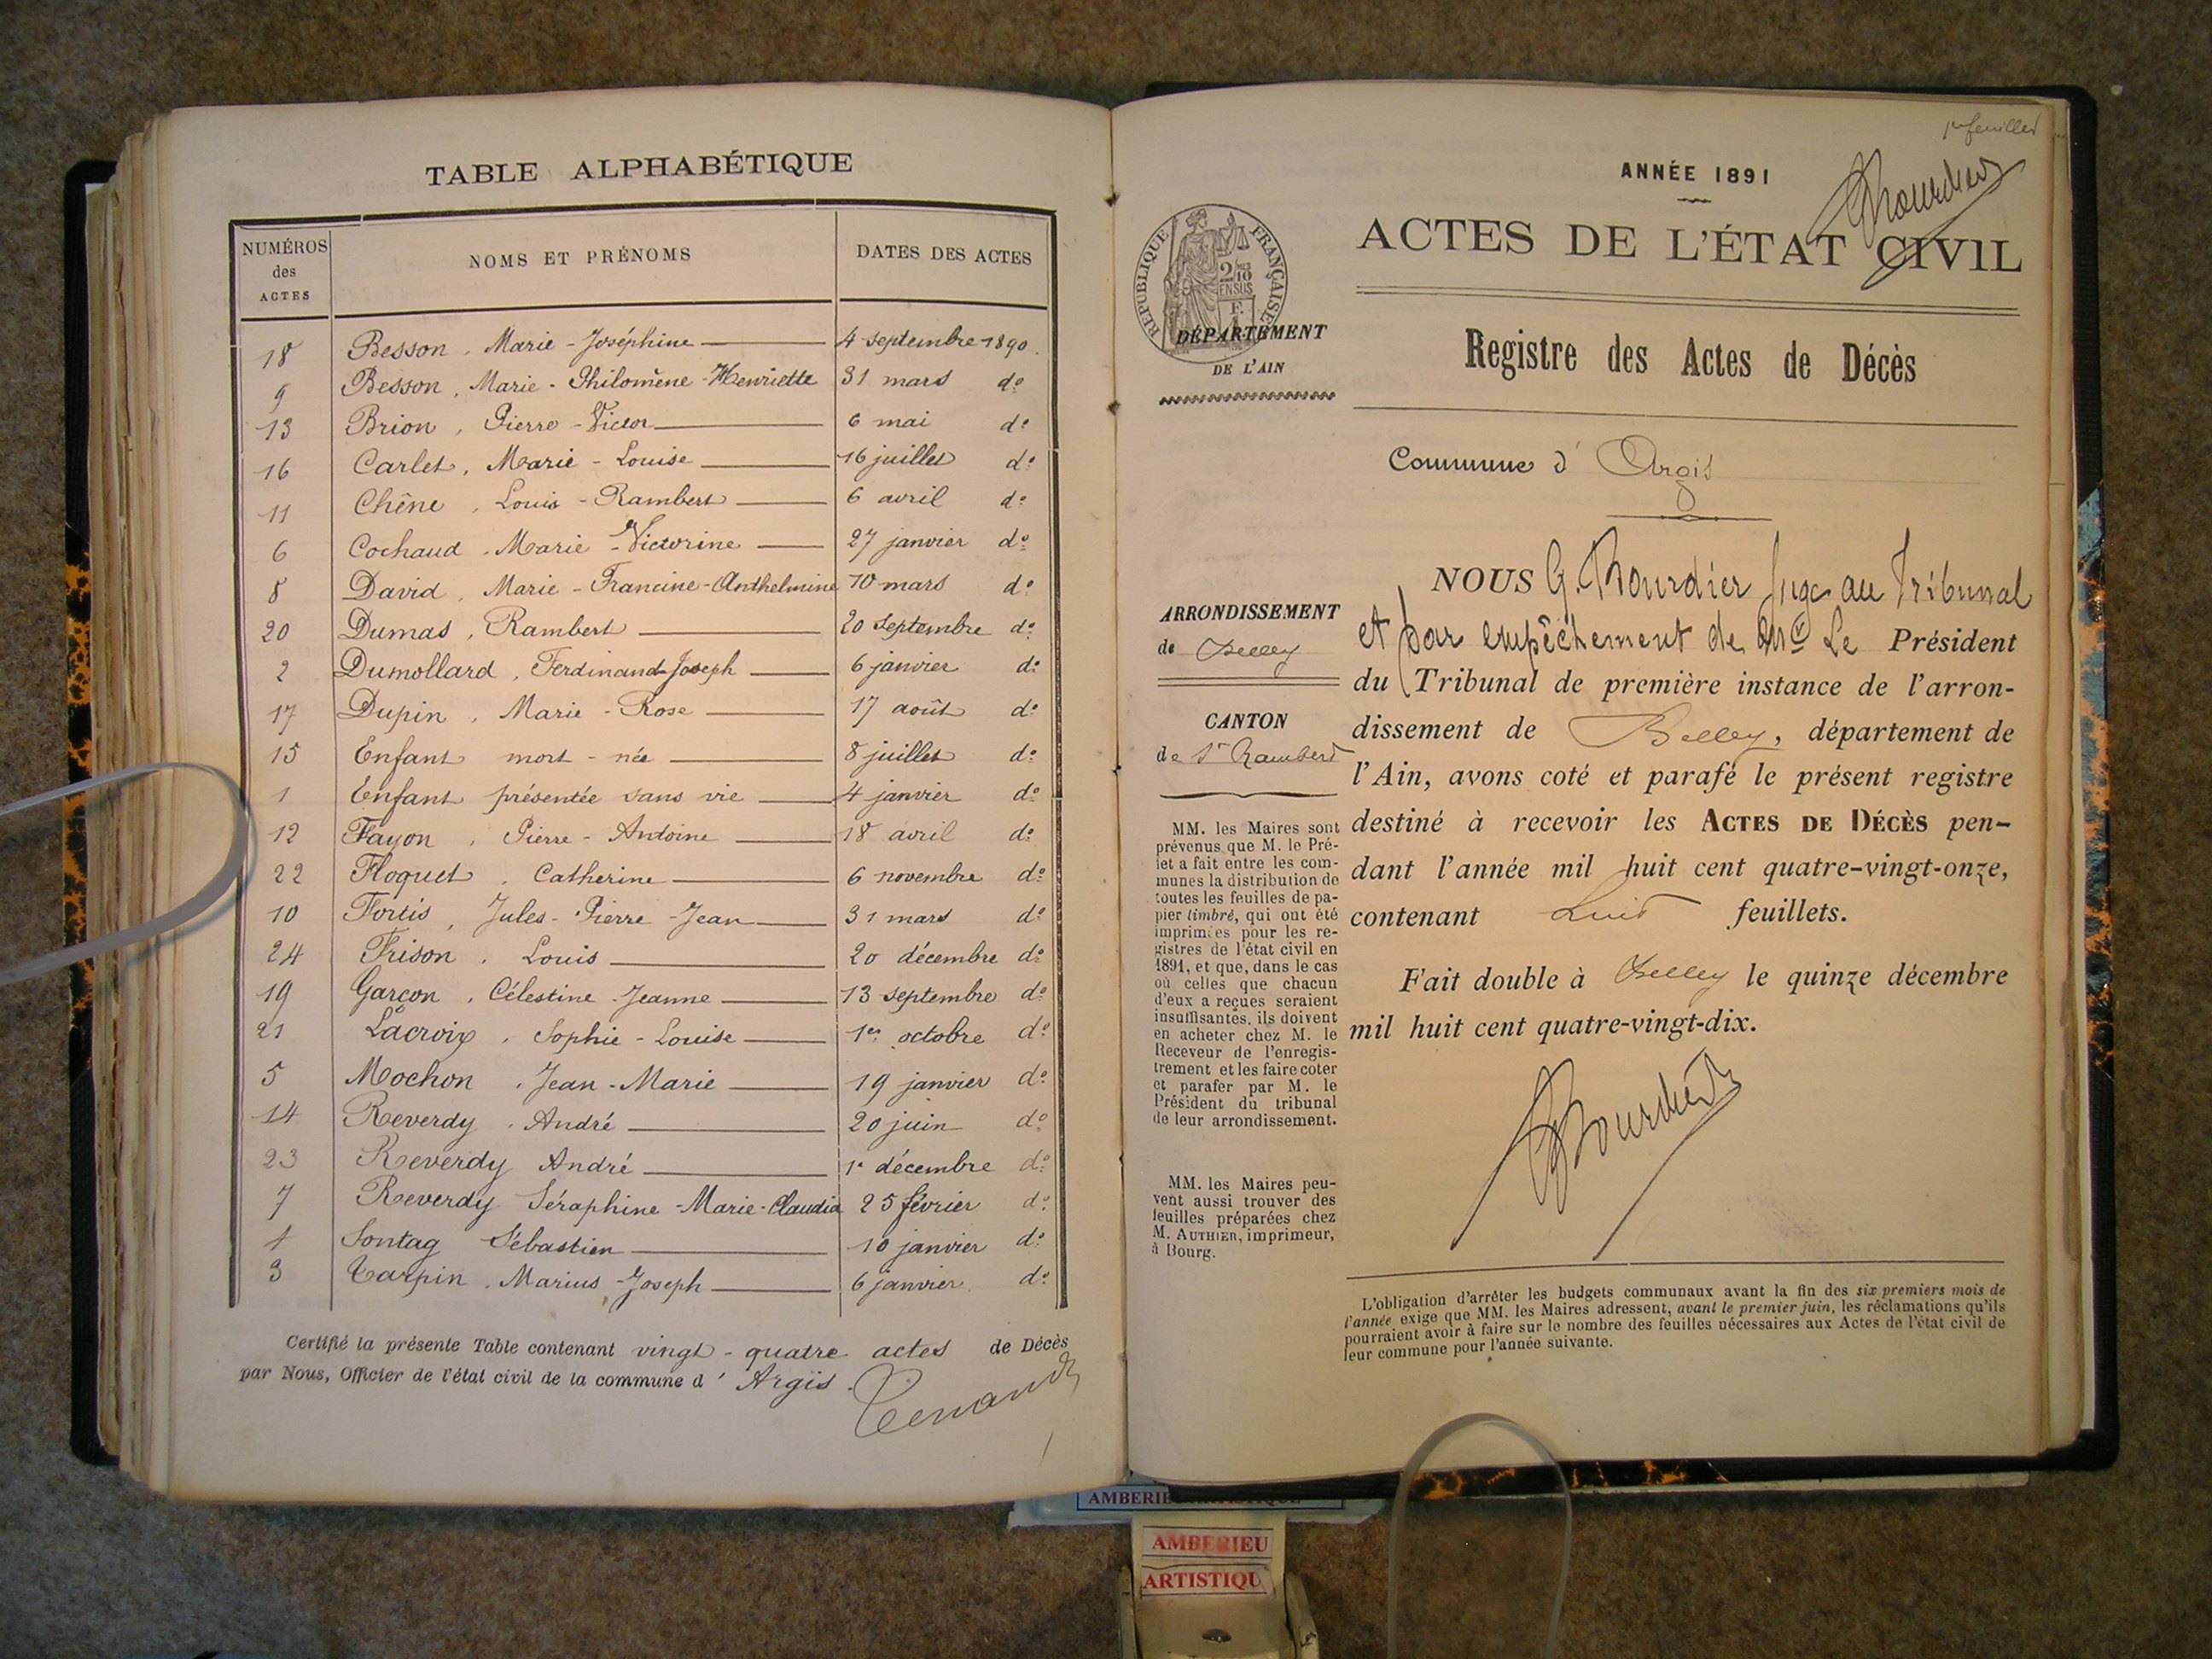 TABLE ALPHABÉTIQUE
NUMÉROS des ACTES NOMS ET PRÉNOMS DATES DES ACTES
18 Besson, Marie-Joséphine 4 septembre 1890.
9 Besson, Marie-Philomène-Henriette 31 mars do
13 Brion, Pierre-Victor 6 mai do
16 Carlet, Marie-Louise 16 juillet do
11 Chêne, Louis-Rambert 6 avril do
6 Cochaud, Marie-Victorine 27 janvier do
8 David, Marie-Francine-Anthelmine 10 mars do
20 Dumas, Rambert 20 septembre do
2 Dumollard, Ferdinand-Joseph 6 janvier do
17 Dupin, Marie-Rose 17 août do
15 Enfant mort-née 8 juillet do
1 Enfant présentée sans vie 4 janvier do
12 Fayon, Pierre-Antoine 18 avril do
22 Floquet, Catherine 6 novembre do
10 Fortis, Jules-Pierre-Jean 31 mars do
24 Frison, Louis 20 décembre do
19 Garçon, Célestine-Jeanne 13 septembre do
21 Lacroix, Sophie-Louise 1er octobre do
5 Mochon, Jean-Marie 19 janvier do
14 Reverdy, André 20 juin do
23 Reverdy André 1er décembre do
7 Reverdy Séraphine-Marie-Claudia 25 février do
Sontag Sébastien 10 janvier do
3 Tarpin, Marius-Joseph 6 janvier do
Certifié la présente Table contenant vingt-quatre actes de Décès
par Nous, Officier de l'état civil de la commune d'Argis.
1er feuillet
ANNÉE 1891
ACTES DE L'ÉTAT CIVIL
RÉPUBLIQUE FRANÇAISE
2/10
EN SUS
DÉPARTEMENT
DE L'AIN
Registre des Actes de Décès
Commune d'Argis
ARRONDISSEMENT
de Belley
CANTON
de St Rambert
NOUS G. Bourdier Juge au Tribunal
et par empêchement de Mr Le Président
du Tribunal de première instance de l'arron-
dissement de Belley, département de
l'Ain, avons coté et parafé le présent registre
destiné à recevoir les ACTES DE DÉCÈS pen-
dant l'année mil huit cent quatre-vingt-onze,
contenant huit feuillets.
Fait double à Belley le quinze décembre
mil huit cent quatre-vingt-dix.
G Bourdier
MM. les Maires sont
prévenus que M. le Pré-
fet a fait entre les com-
munes la distribution de
toutes les feuilles de pa-
pier timbré, qui ont été
imprimées pour les re-
gistres de l'état civil en
1891, et que, dans le cas
où celles que chacun
d'eux a reçues seraient
insuffisantes, ils doivent
en acheter chez M. le
Receveur de l'enregis-
trement et les faire coter
et parafer par M. le
Président du tribunal
de leur arrondissement.
MM. les Maires peu-
vent aussi trouver des
feuilles préparées chez
M. AUTHIER, imprimeur,
à Bourg.
L'obligation d'arrêter les budgets communaux avant la fin des six premiers mois de
l'année exige que MM. les Maires adressent, avant le premier juin, les réclamations qu'ils
pourraient avoir à faire sur le nombre des feuilles nécessaires aux Actes de l'état civil de
leur commune pour l'année suivante.
AMBERIEU
ARTISTIQU